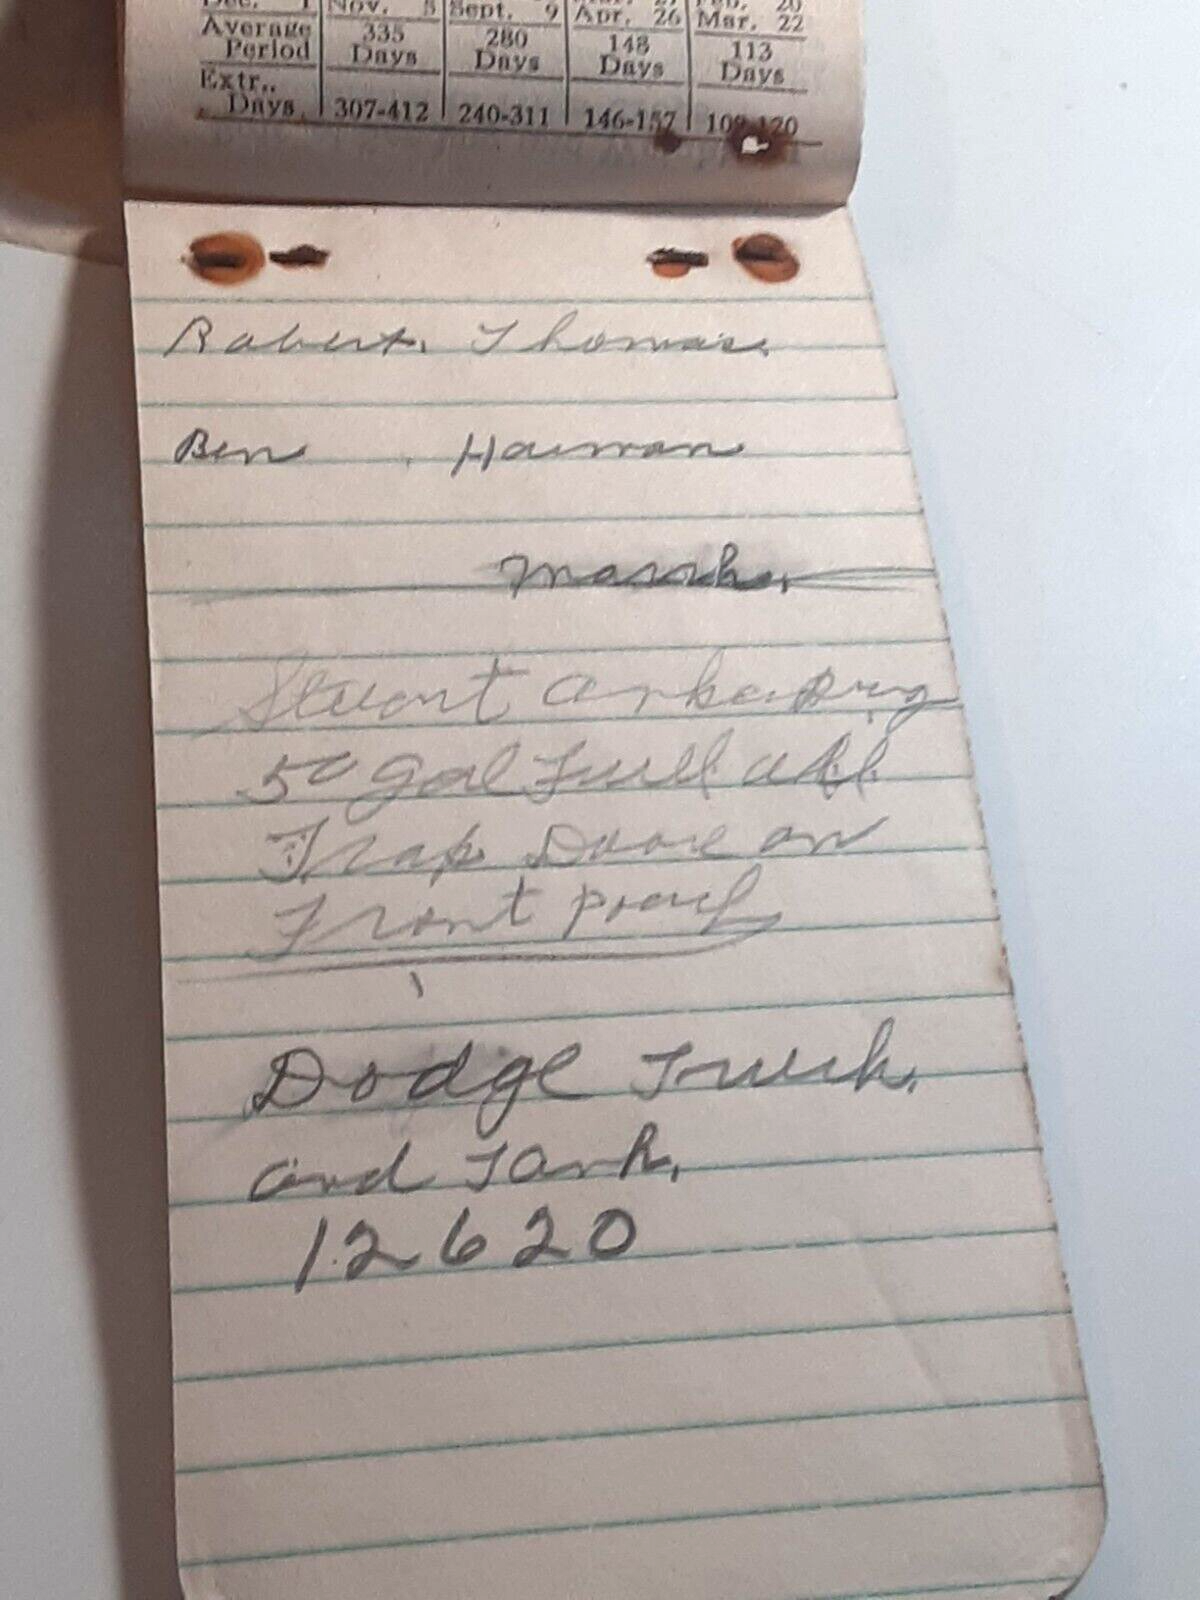 Dec. 1 Nov. 8 Sept. 9 Apr. 26 Mar. 22
Average Period 335 Days 280 Days 148 Days 113 Days
Extr.. Days 307-412 240-311 146-157 109-120
Robert. Thomas.
Ben Haiman
Marsh.
Stuart
50 gal Fuell
Trap Doore on
Front porch
Dodge Truck.
and Tank.
12620